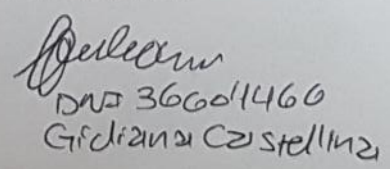 DNI 36604466
Gidiana Castellina